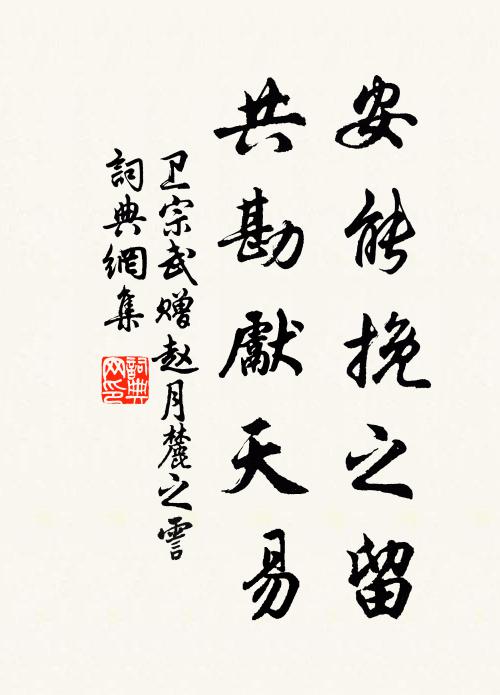 安能挽之留
共勘獻天易
卫宗武赠赵月麓之霅
詞典網集
詞典网印